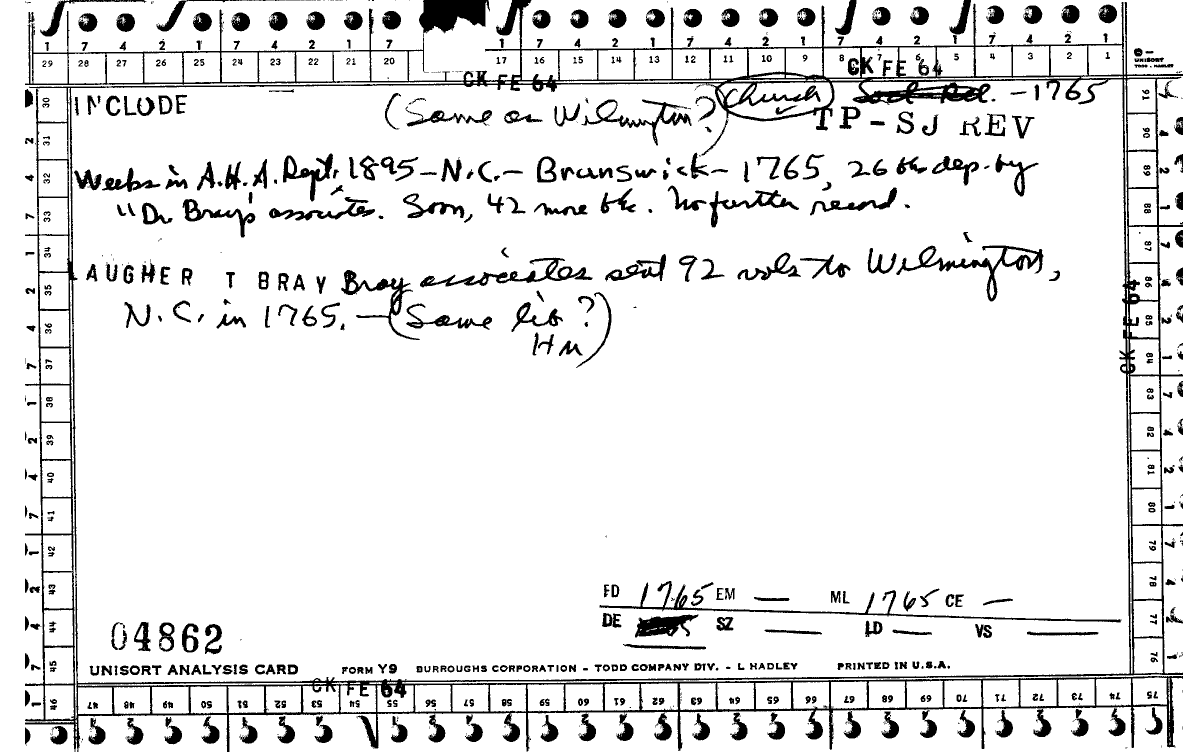 1 7 4 2 1 7 4 2 1 7 1 7 4 2 1 7 4 2 1 7 4 2 1 7 4 2 1
29 28 27 26 25 24 23 22 21 20 17 16 15 14 13 12 11 10 9 8 7 6 5 4 3 2 1
UNISORT
TODD - HADLEY
CK FE 64
CK FE 64
INCLUDE
(Same as Wilmington?) Church -1765
TP-SJ REV
Weeks in A.H.A. Rept. 1895-N.C.- Brunswick- 1765, 26 bks dep. by
"Dr Bray's associates. Soon, 42 more bks. No further record.
LAUGHER T BRAY Bray associates sent 92 vols to Wilmington,
N.C. in 1765. -(Same lib?)
HM
CK FE 64
FD 1765 EM — ML 1765 CE —
DE SZ — LD — VS —
04862
UNISORT ANALYSIS CARD FORM Y9 BURROUGHS CORPORATION - TODD COMPANY DIV. - L HADLEY PRINTED IN U.S.A.
CK FE 64
30 31 32 33 34 35 36 37 38 39 40 41 42 43 44 45 46
47 48 49 50 51 52 53 54 55 56 57 58 59 60 61 62 63 64 65 66 67 68 69 70 71 72 73 74 75
91 90 89 88 87 86 85 84 83 82 81 80 79 78 77 76